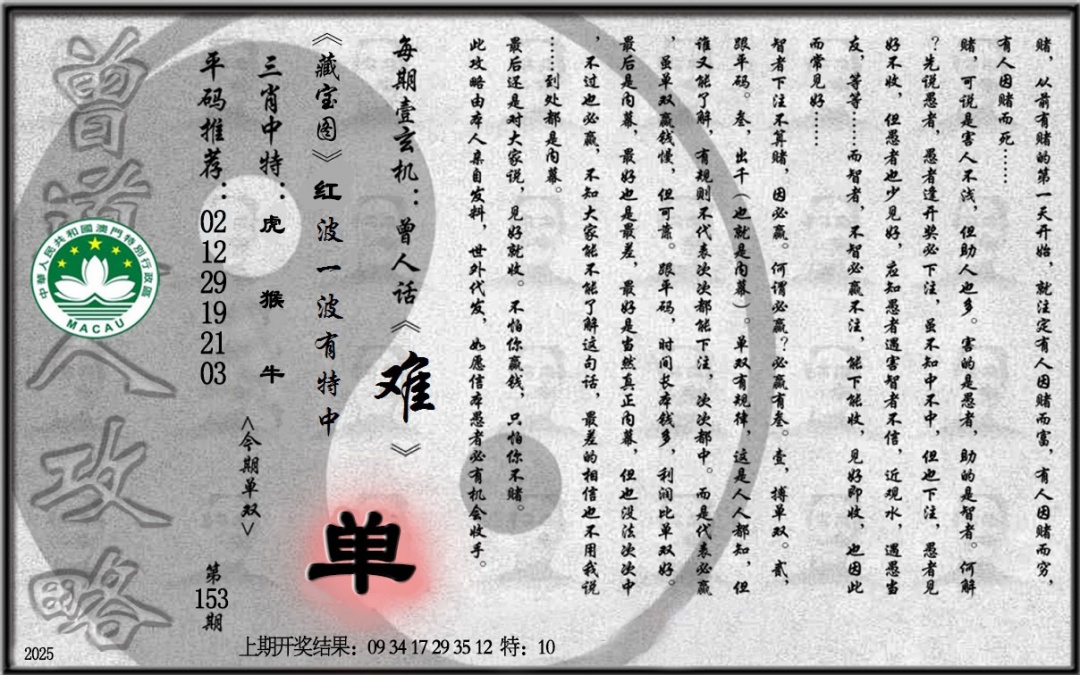 赌，从前有赌的第一天开始，就注定有人因赌而富，有人因赌而穷，
有人因赌而死……
赌，可说是害人不浅，但助人也多。害的是愚者，助的是智者。何解
？先说愚者，愚者逢开奖必下注，虽不知中不中，但也下注，愚者见
好不收，但愚者也少见好，应知愚者遇害智者不信，近观水，遇愚当
友，等等……而智者，不智必赢不注，能下能收，见好即收，也因此
而常见好……
智者下注不算赌，因必赢。何谓必赢？必赢有叁。壹，搏单双。贰，
跟平码。叁，出千（也就是内幕）。单双有规律，这是人人都知，但
谁又能了解，有规则不代表次次都能下注，次次都中。而是代表必赢
，虽单双赢钱慢，但可靠。跟平码，时间长本钱多，利润比单双好。
最后是内幕，最好也是最差，最好是当然真正内幕，但也没法次次中
，不过也必赢，不知大家能不能了解这句话，最差的相信也不用我说
……到处都是内幕。
最后还是对大家说，见好就收。不怕你赢钱，只怕你不赌。
此攻略由本人亲自发料，世外代发，如愿信本愚者必有机会收手。
每期壹玄机：曾人话《难》
《藏宝图》红波一波有特中
三肖中特：虎 猴 牛
平码推荐：02 12 29 19 21 03
<今期单双>
单
第153期
曾道人攻略
中華人民共和國澳門特別行政區
MACAU
上期开奖结果：09 34 17 29 35 12 特：10
2025